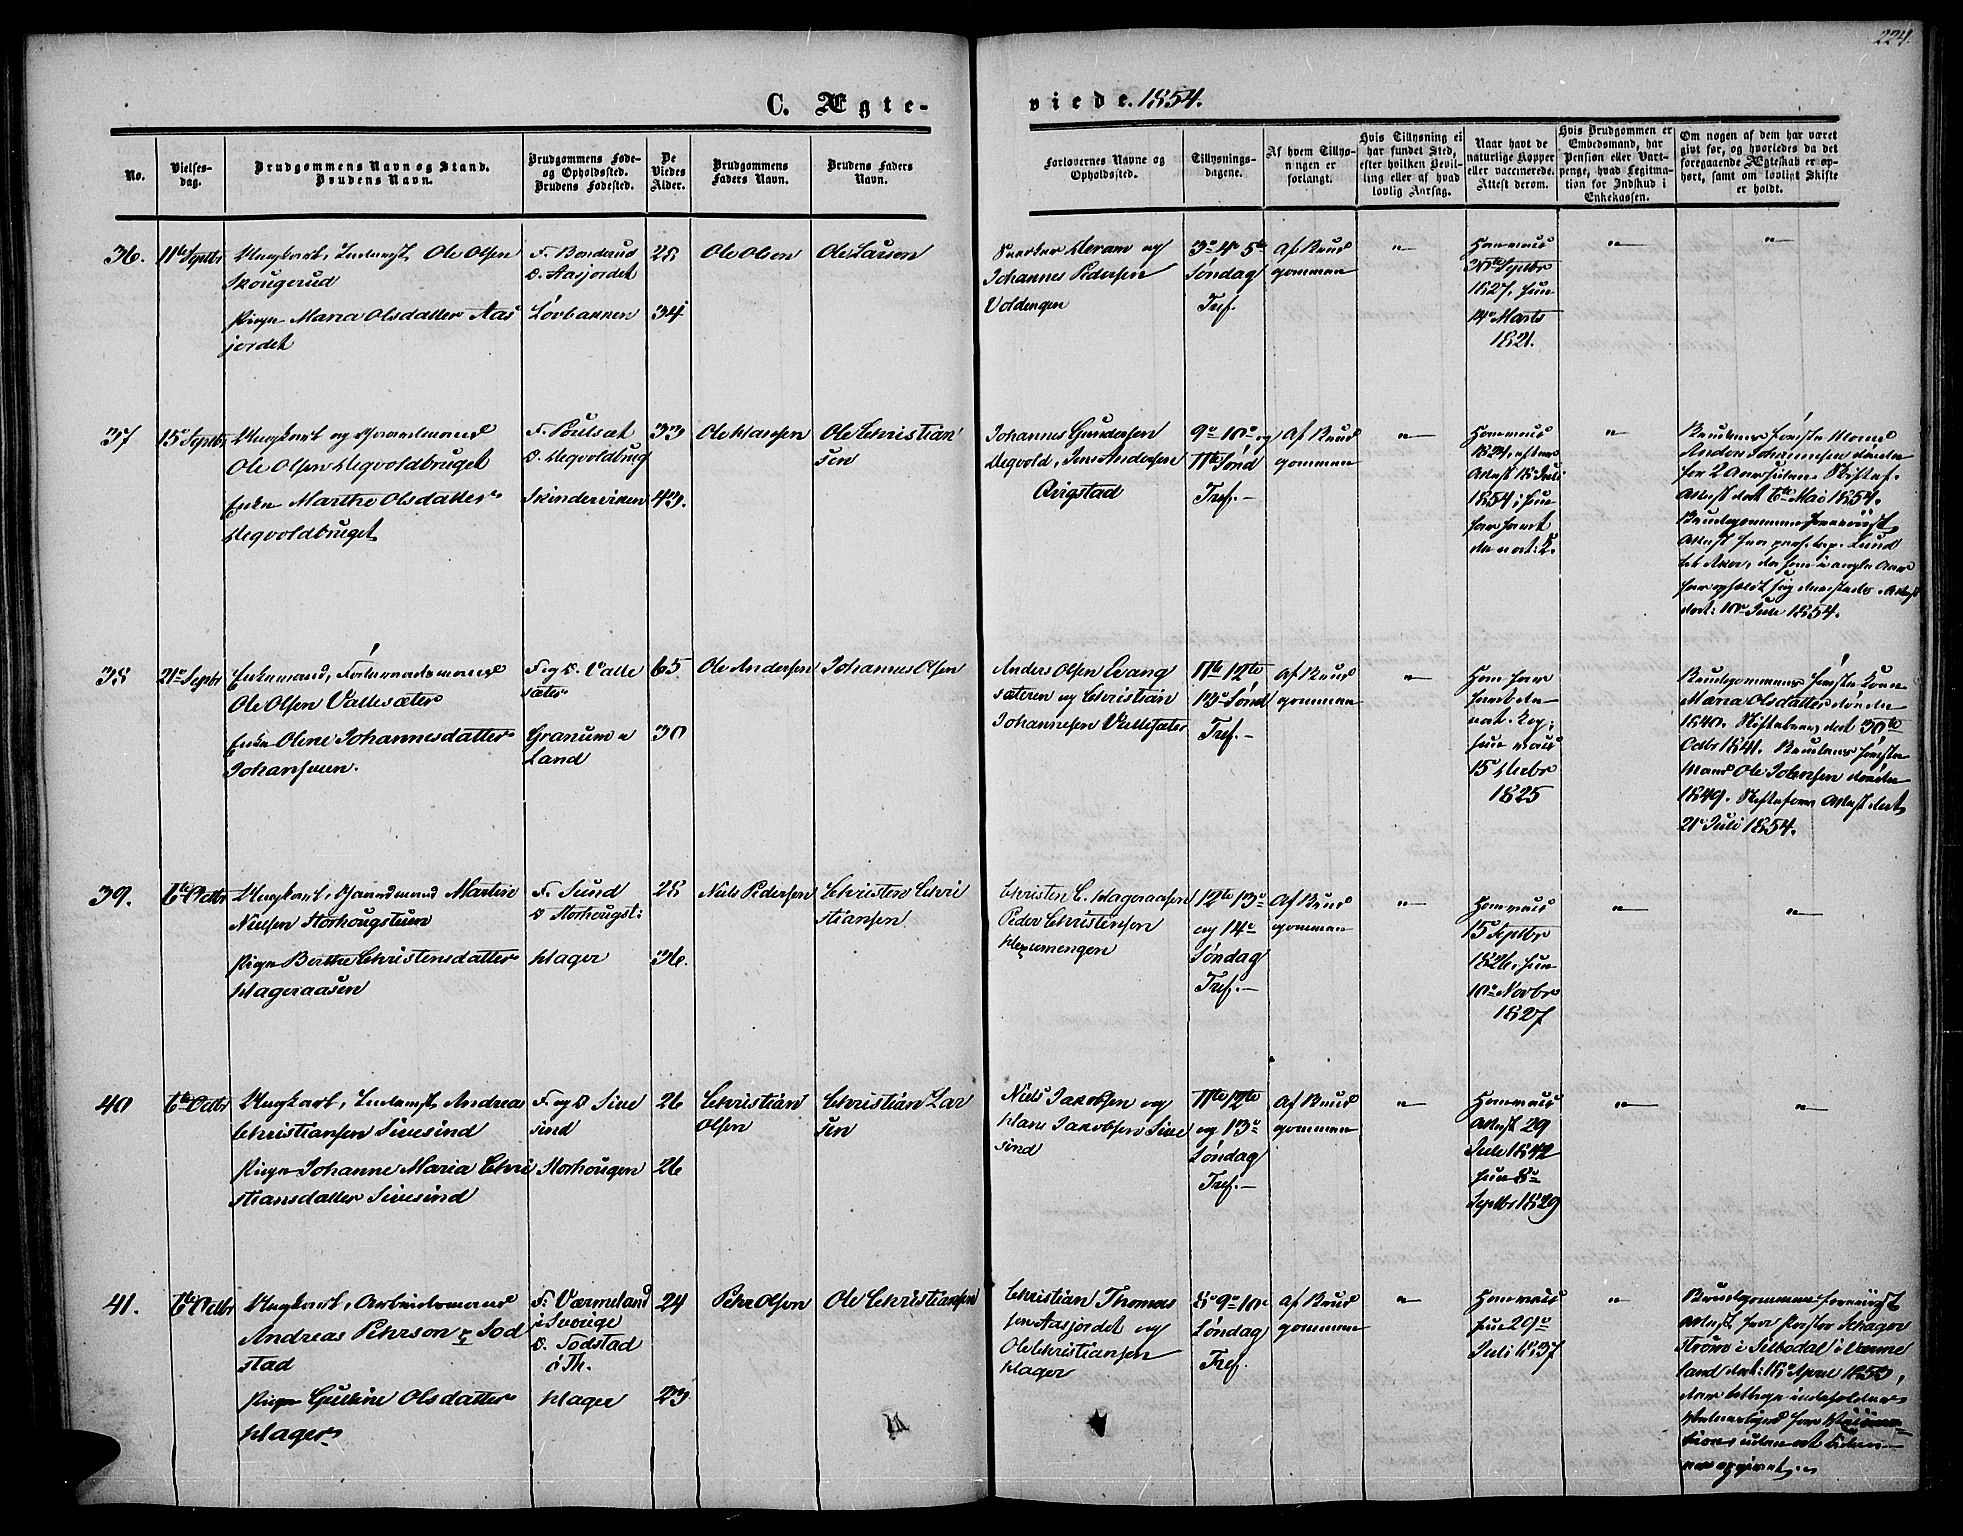 224.
C. Ægte-
viede. 1854.
No.
Vielses-
dag.
Brudgommens Navn og Stand.
Brudens Navn.
Brudgommens Føde-
og Opholdssted.
Brudens Fødested.
De
Viedes
Alder.
Brudgommens
Faders Navn.
Brudens Faders
Navn.
Forlovernes Navne og
Opholdssted.
Tillysnings-
dagene.
Af hvem Tillys-
ningen er
forlangt.
Hvis Tillysning ei
har fundet Sted,
efter hvilken Bevil-
ling eller af hvad
lovlig Aarsag.
Naar havt de
naturlige Kopper
eller vaccinerede.
Attest derom.
Hvis Brudgommen er
Enbedsmand, har
Pension eller Vart-
penge, hvad Legitima-
tion for Indskud i
Enkekassen.
Om nogen af dem har været
givt før, og hvorledes da det
foregaaende Ægteskab er op-
hørt, samt om lovligt Skifte
er holdt.
36.
11te Septbr
Ungkarl, Inderst, Ole Olsen
Skougerud
Pige Maria Olsdatter Aas
jordet
F. Borderud
O. Aasjordet
Løvbakken
28
34
Ole Olsen
Ole Larsen
Johannes Pedersen
Voldengen
3die 4de 5te
Søndag
Tref.
Af Brud
gommen
"
Han vacc
Septbr
1827, hun
14de Marts
1821.
"
"
37
15de Septbr
Ungkarl og Gaardmand
Ole Olsen Hegvoldbruget
Enke Marthe Olsdatter
Hegvoldbruget
F. Poulsæt
O. Hegvoldbrug
Skinderviken
33
49.
Ole Hansen
Ole Christian
sen
Johannes Gundersen
Hegvold, Jens Andersen
Ringstad
9de 10de og
11te Sønd
Tref.-
Af Brud
gommen
"
Han vacc
1824, efter
Attest 18 Juli
1854; hun
har havt
de nat: K.
"
Brudens første Mand
Anders Johannesen døde
for 2 Aar siden. Skiftef.
Attest dat 6te Mai 1854.
Brudgommen foreviist
Attest fra pers. cap. Lund
til Aker, da han i nogle Aar
har opholdt sig dersteds. Attest
dat: 10de Juli 1854.
38
21de Septbr
Enkemand, Føderaadsmand
Ole Olsen Vallesæter
Enke Olene Johannesdatter
Johansveen.
F. og O. Valle
sæter
Granum i
Land
65
30
Ole Andersen
Johannes Olsen
Anders Olsen Evang
sæteren og Christian
Johannesen Vallesæter
11te 12te
13de Sønd
Tref.-
Af Brud
gommen
"
Han har
havt de
nat. Kop;
hun vacc
15 Decbr
1825
Brudgommens første Kone
Maria Olsdatter døde
1840. Skiftebrev dat 30te
Octbr 1841. Brudens første
Mand Ole Johansen døde
1849. Skifteforv Attest dat
21de Juli 1854.
39.
6te Octbr
Ungkarl, Gaardmand Martin
Nielsen Storhougstuen
Pige Berthe Christensdatter
Hageraasen
F. Sund
O Storhougst:
Hager
28
36.
Niels Pedersen
Christen Chri
stiansen
Christen C. Hageraasen
Peder Christensen
12te 13de
og 14de
Søndag
Tref.-
Af Brud
gommen
"
Han vacc
15 Septbr
1826, hun
10de Novbr
1827
"
"
40
6te Octbr
Ungkarl, Inderst, Andreas
Christiansen Sivesind
Pige Johanne Maria Chri
stiansdatter Sivesind
F. og O Sive
sind
Storhougen
26
26
Christian
Olsen
Christian Lar
sen
Niels Jakobsen og
Hans Jakobsen Sive
sind
11te 12te
og 13de
Søndag
Tref.-
Af Brud
gommen
"
Han vacc
Attest 29
Juli 1842
hun 8de
Septbr 1829
"
"
41.
6te Octbr
Ungkarl, Arbeidsmand
Andreas Pehrson Tod
stad
Pige Gulline Olsdatter
Hager
F. Værmeland
i Sverige
O. Todstad
i Th.
Hager
24
23
Pehr Olsen
Ole Christiansen
Christian Thomas
sen Aasjordet og
Ole Christiansen
Hager
8de 9de 10de
Søndag
Tref.
Af Brud
gommen
"
Han vacc
hun 29de
Juli 1837
"
Brudgommen foreviist
Attest fra Pastor Schager
Strøm i Silbodal i Værme
land dat: 18de April 1853,